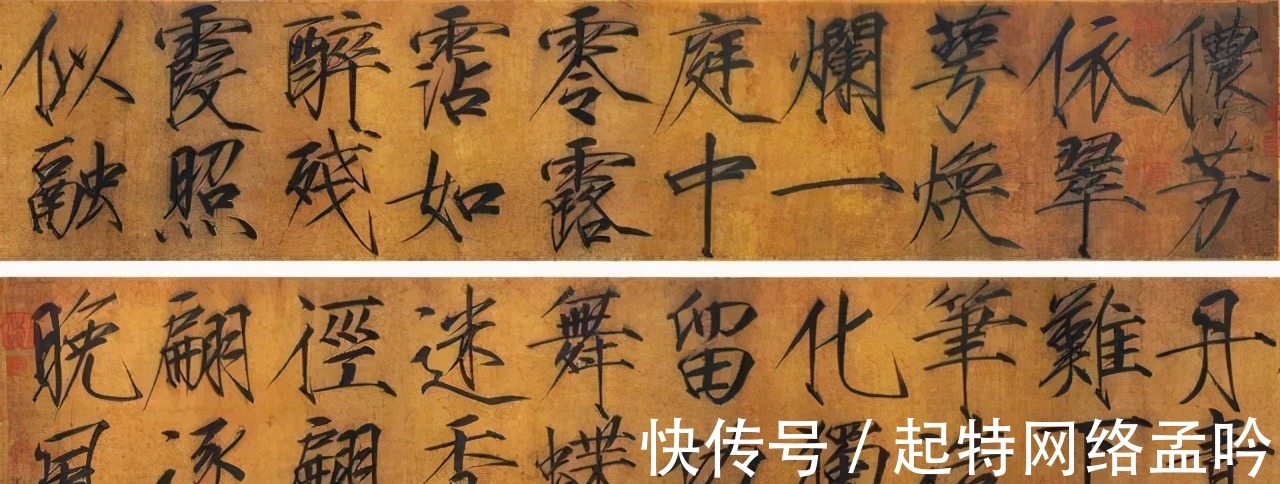 穠芳
依翠
萼煥
爛一
庭中
零露
霑如
醉残
霞照
似融
丹
難
筆
化獨
留
舞蝶
迷香
徑翩
翩逐
晚風
快传号 / 起特网络孟吟